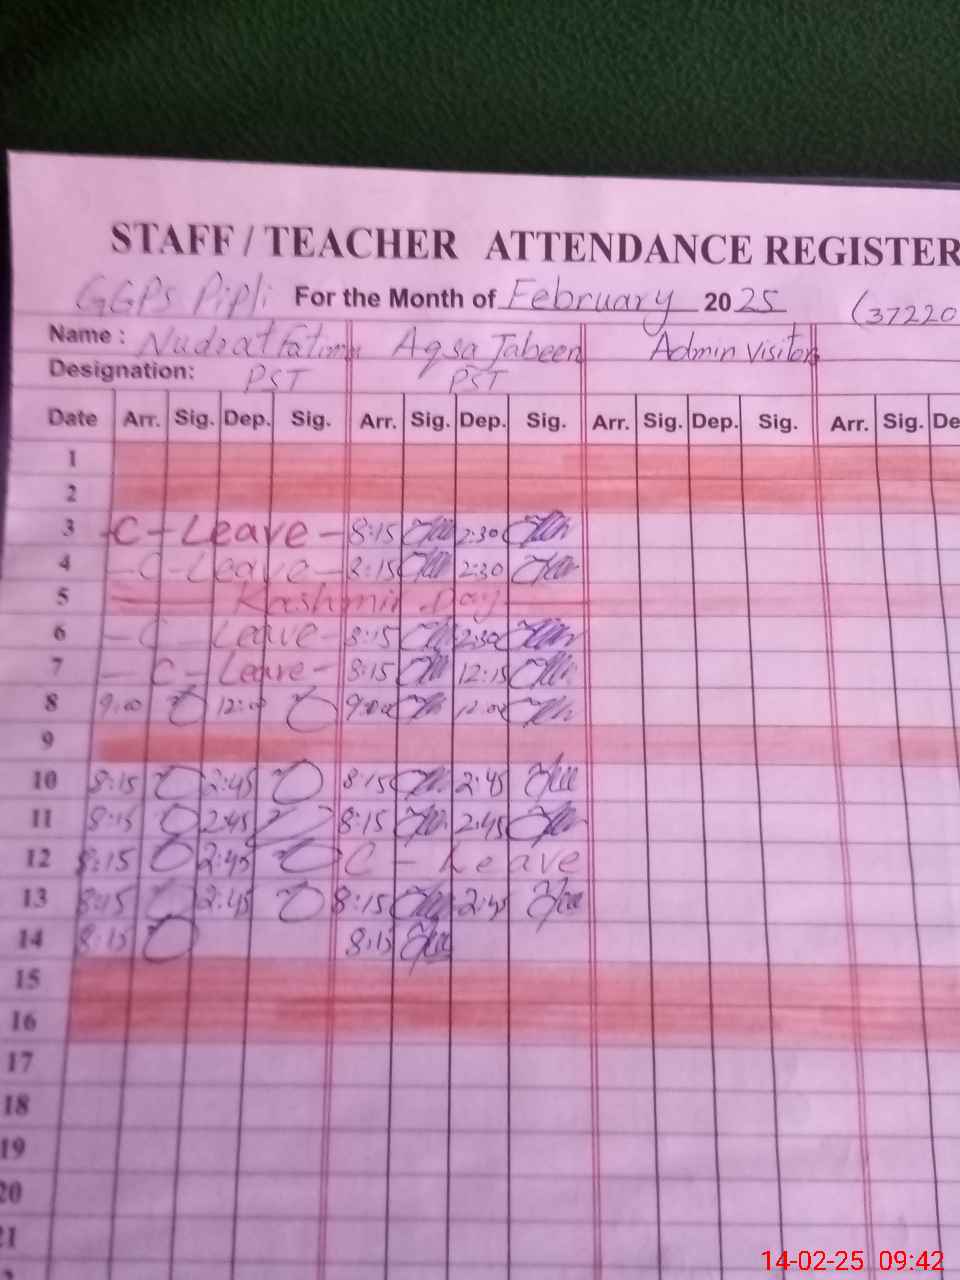 STAFF / TEACHER ATTENDANCE REGISTER
GGPS Pipli For the Month of February 2025 (37220
Name : Nudrat Fatima Aqsa Jabeen Admin Visitor
Designation: PST PST
Date Arr. Sig. Dep. Sig. Arr. Sig. Dep. Sig. Arr. Sig. Dep. Sig. Arr. Sig. De
1
2
3 C-Leave- 8:15 2:30
4 -C-Leave- 8:15 2:30
5 Kashmir Day
6 -C-Leave- 8:15 2:30
7 -C-Leave- 8:15 12:15
8 9:00 12:00 9:00 12:00
9
10 8:15 2:45 8:15 2:45
11 8:15 2:45 8:15 2:45
12 8:15 2:45 C - Leave
13 8:15 2:45 8:15 2:45
14 8:15 8:15
15
16
17
18
19
20
21
14-02-25 09:42